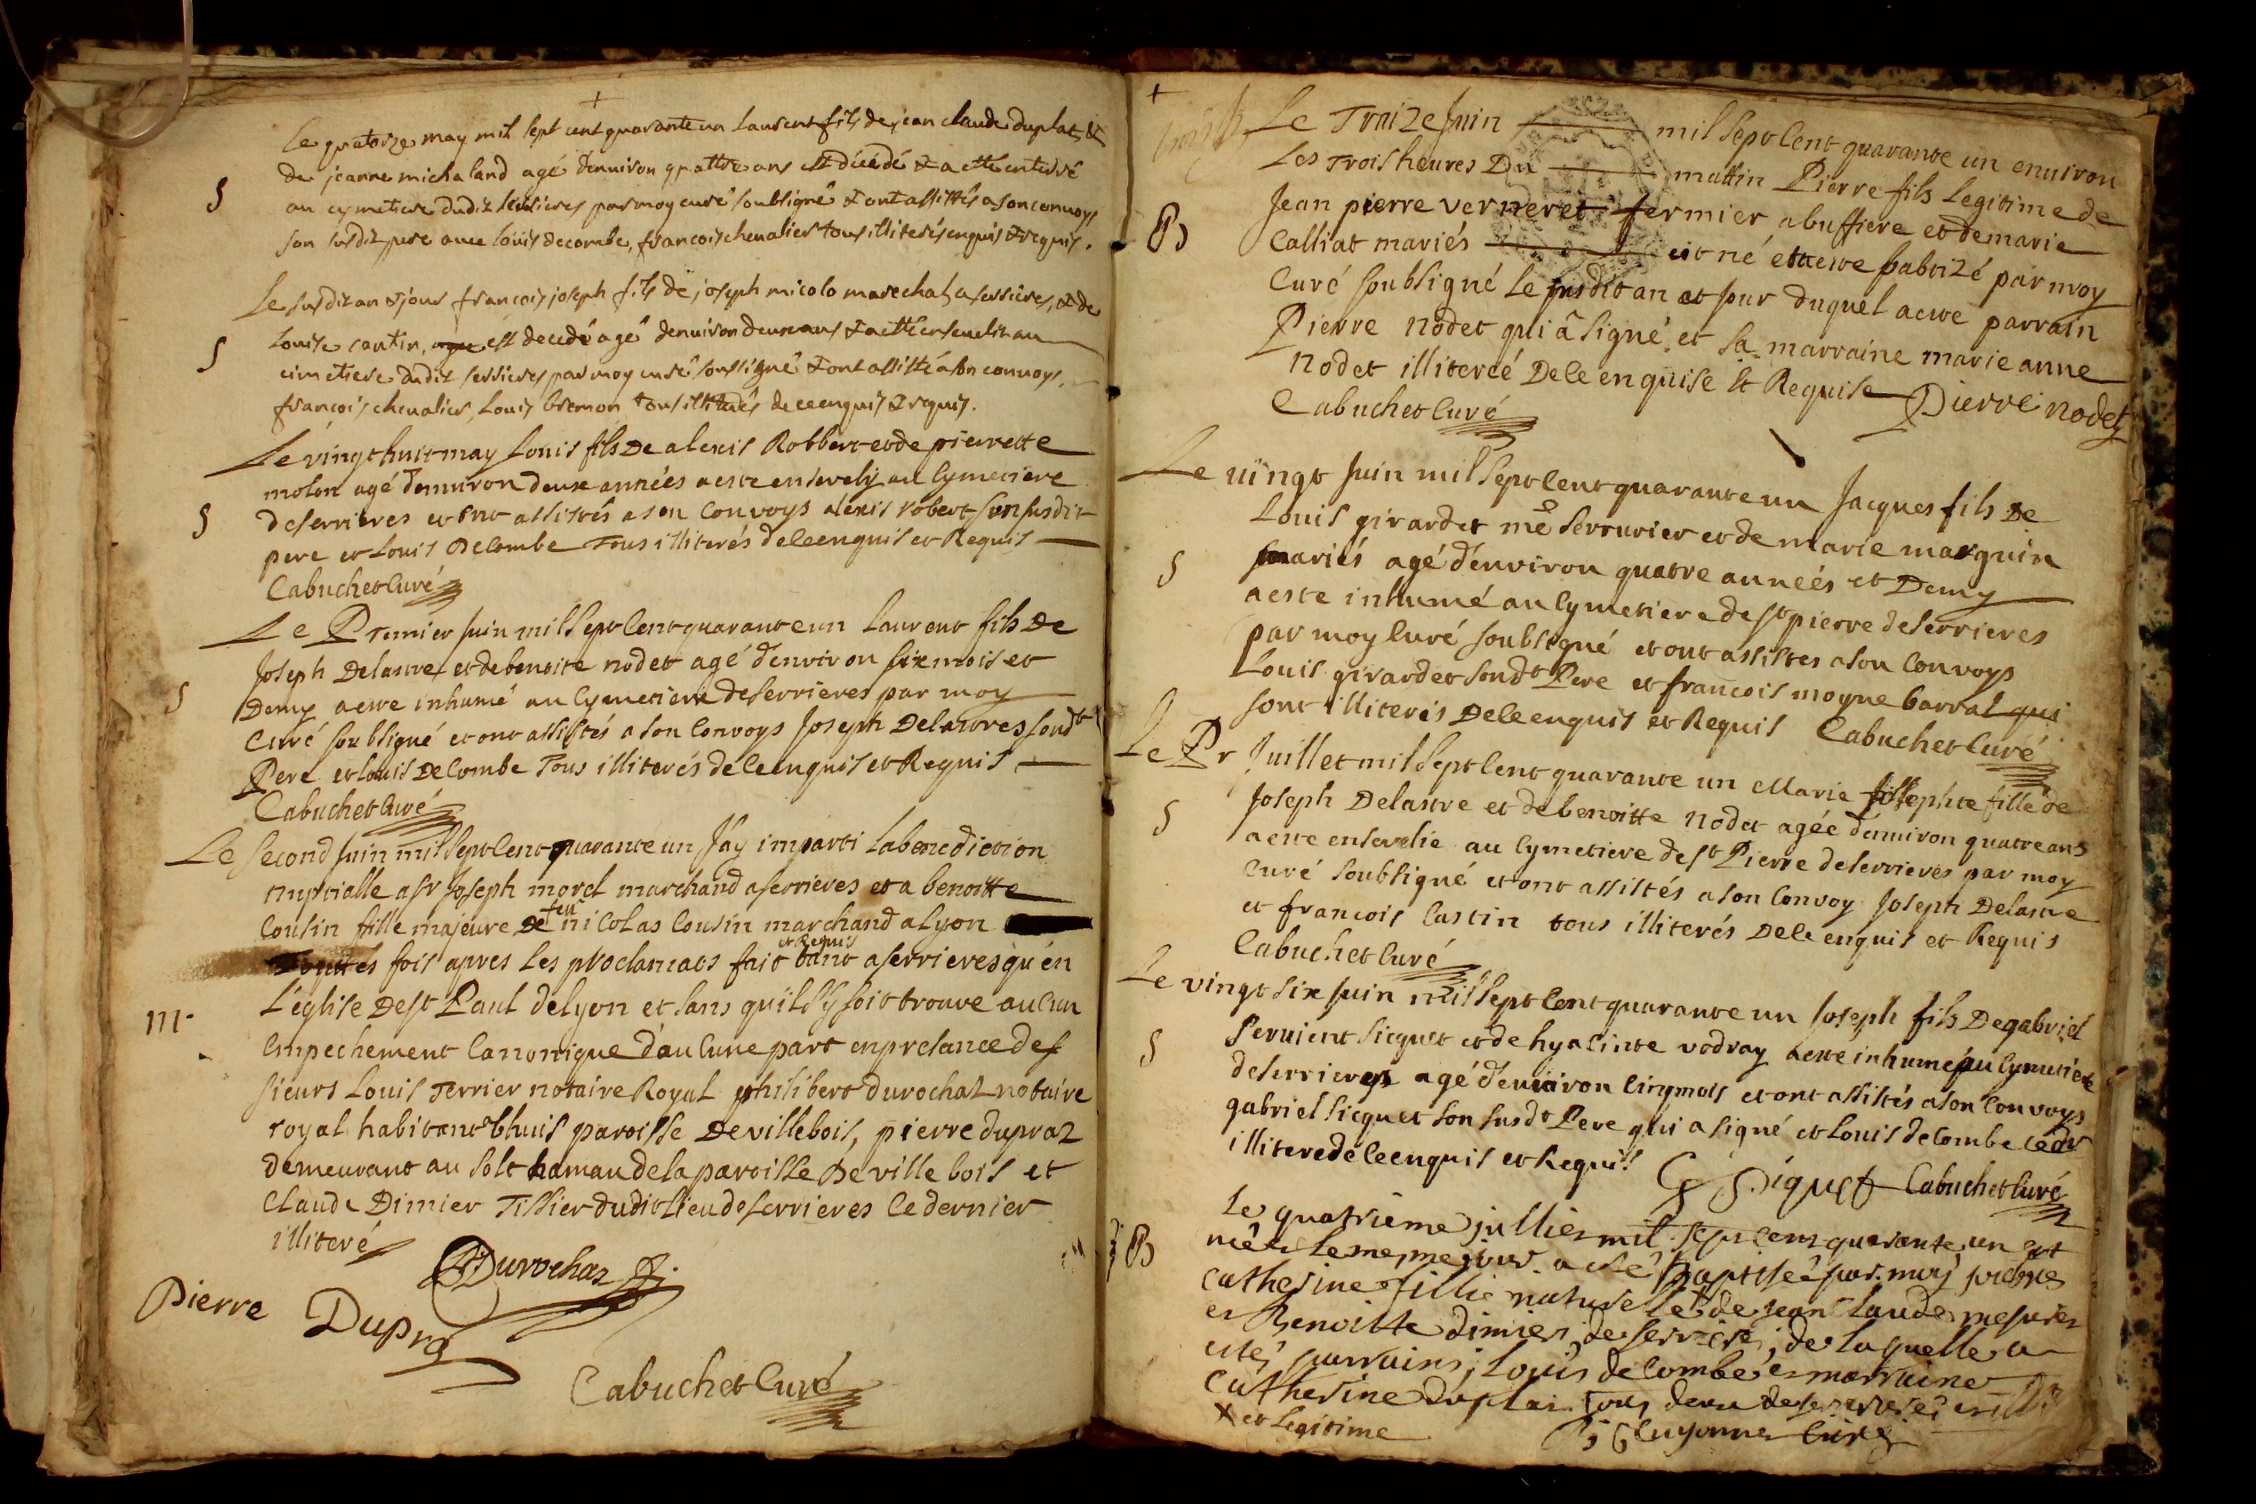 Le quatorze may mil sept cent quarante un laurent fils de jean claude duplat, &
de jeanne michaland agé denuiron quattre ans est décédé & a etté enterré
au cymetiere dudit serrieres par moy curé soubsigné & ont assistés a son convoys
son susdit pere avec loüis decombe, francois chevalier tous illiterés enquis & requis.
Le susdit an & jour francois joseph fils de joseph micolo marechal, a serrieres, & de
Louise cantin, est decedé agé denuiron deux ans & a etté enseuelit au
cimetiere dudit serrieres par moy curé soussigné & ont assisté á son convoys,
francois chevalier, Louis bremon tous illiterés de ce enquis & requis.
Le vingt huit may Louis fils De alexis Robbert et de pierrette
molon agé d'enuiron deux années a este ensevely au Cymetiere
S
S
S
de serrieres et ont assistés a son Convoys alexis robert son susdit
pere et Louis Decombe Tous illiterés de ce enquis et Requis
Cabuchet Curé
Le Premier Juin mil Sept Cent quarante un Laurent fils De
Joseph Delastre et de benoite nodet agé d'environ six mois et
S
Demy a este inhumé au Cymetiere de serrieres par moy
Curé soubsigné et ont assistés a son Convoys Joseph Delastres sond^t
Pere et louis Decombe Tous illiterés de ce enquis et Requis
Cabuchet Curé
Le second Juin mil sept Cent quarante un J'ay imparti la benediction
nuptialle a s^r Joseph morel marchand a serrieres et a benoitte
Cousin fille majeure De feu nicolas Cousin marchand a Lyon
fois apres Les proclamaos fait et Requis tant a serrieres qu'en
L'église De s^t Paul de lyon et sans qu'il s'y soit trouvé aucun
m.
Empechement Canonique d'aucune part en presance des
sieurs Louis Terrier notaire Royal philibert durochat notaire
royal habitant bhuis paroisse De villebois, pierre dupraz
demeurant au solt hamau de la paroisse De ville bois et
Claude Dimier Tissier dudit lieu de serrieres Ce dernier
illiteré
Durochat
Pierre Dupra
Cabuchet Curé
Le Traize Juin mil Sept Cent quarante un enuiron
Les Trois heures Du mattin Pierre fils Legitime de
B
Jean pierre verneret fermier a buffiere et de marie
Calliat mariés est né et a este babtizé par moy
Curé soubsigné Le susdit an et jour duquel a este parrain
Pierre nodet qui a signé et Sa marraine marie anne
nodet illiterée De Ce enquise et Requise Pierre nodet
Cabuchet Curé
Le vingt Juin mil Sept Cent quarante un Jacques fils De
Louis girardet m^e Serrurier et de marie marguin
S
mariés agé d'environ quatre anneés et Demy
a este inhumé au Cymetiere de s^t pierre de serrieres
par moy Curé soubsigné et ont assistes a son Convoys
Louis girardet sond^t Pere et francois moyne barral qui
sont illiterés De Ce enquis et Requis Cabuchet Curé
Le Pr Juillet mil Sept Cent quarante un Marie Josephte fille de
S
Joseph Delastre et de benoitte nodet agée d'enuiron quatre ans
a este ensevelie au Cymetiere de s^t Pierre de serrieres par moy
Curé soubsigné et ont assistés a son Convoy Joseph Delastre
et francois Castin tous illiterés De Ce enquis et Requis
Cabuchet Curé
Le vingt six Juin mil sept Cent quarante un Joseph fils De gabriel
S
Servient sicquet et de hyacinte vodray a este inhumé au Cymetiere
de serrieres agé d'enuiron Cinq mois et ont assistés a son Convoys
gabriel sicquet son susd^t Pere qui a signé et Louis decombe
illiteré de Ce enquis et Requis G Siquet Cabuchet Curé
B
Le quatrieme jullier mil sept cens quarante un est
née le meme jour a esté baptisée par moy
Catherine fillie naturelle + de jean Claude mesurier
et Benoitte dimier, de serriere; de laquelle a
esté parrains; Louis decombe et marraine
Catherine Duplai tous deux de serrieres
+ et Legitime